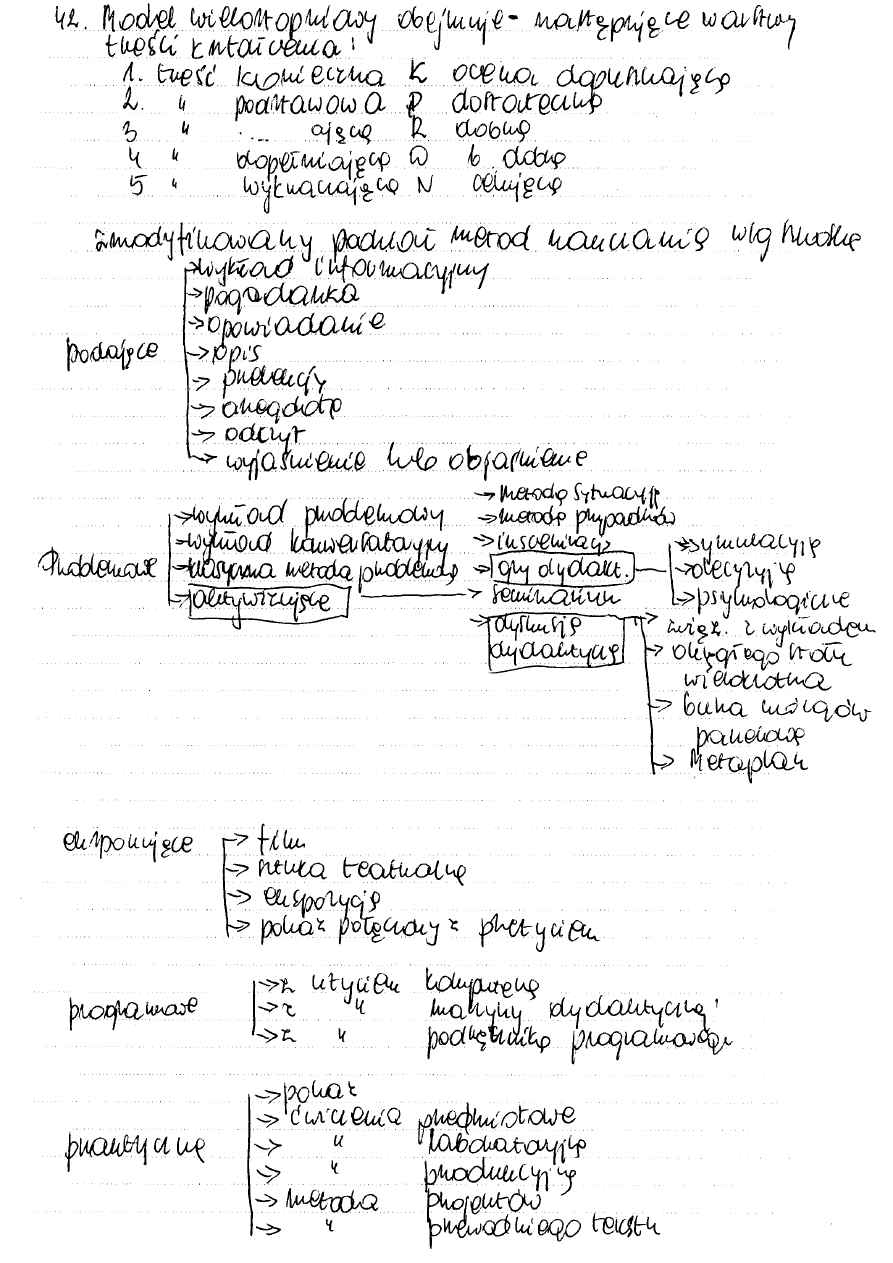 42. Model wielostopniowy obejmuje - następujące warstwy
treści kształcenia:
1. treść konieczna K ocena dopuszczająca
2. " podstawowa P dostateczna
3 " .... ająca R dobra
4 " dopełniająca D b dobra
5 " wykraczająca W celująca
zmodyfikowany podział metod nauczania wg
podające
→ wykład informacyjny
→ pogadanka
→ opowiadanie
→ opis
→ prelekcja
→ anegdota
→ odczyt
→ wyjaśnienie lub objaśnienie
Problemowe
→ wykład problemowy
→ wykład konwersatoryjny
→ klasyczna metoda problemowa
→ aktywizujące
→ metoda sytuacyj
→ metoda przypadków
→ inscenizacja
→ gry dydakt.
→ symulacyjne
→ decyzyjne
→ psychologiczne
seminarium
→ dyskusja
dydaktyczna
→ związ. z wykładem
→ okrągłego stołu
wielokrotna
→ burza mózgów
panelowa
→ Metaplan
eksponujące
→ film
→ sztuka teatralna
→ ekspozycja
→ pokaz połączony z przeżyciem
programowe
→ z użyciem komputera
→ z " maszyny dydaktycznej
→ z " podręcznika programowego
praktyczne
→ pokaz
→ ćwiczenia przedmiotowe
→ " laboratoryjne
→ " produkcyjne
→ metoda projektów
→ " przewodniego tekstu